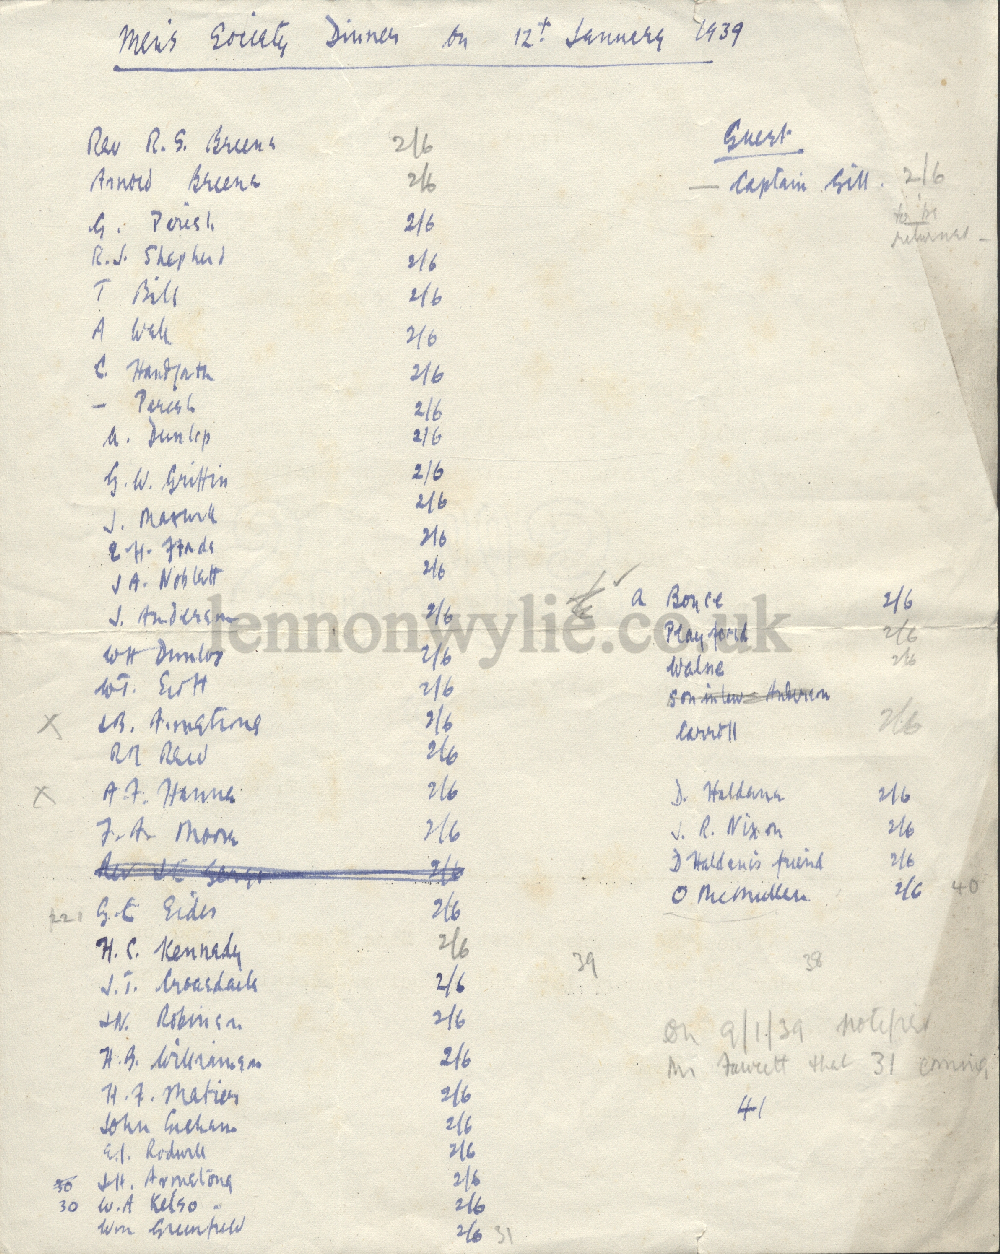 Men's Society Dinner on 12th January 1939
Rev R.G. Breene 2/6
Arnold Breene 2/6
G. Perish 2/6
R.J. Shepherd 2/6
T Bill 2/6
A Wall 2/6
C. Handforth 2/6
— Perish 2/6
A. Dunlop 2/6
G.W. Griffin 2/6
J. Maxwell 2/6
H. 2/6
J A. Noblett 2/6
J. Anderson 2/6
WH Dunlop 2/6
WT. Scott 2/6
X J.B. Armstrong 2/6
RM Reid 2/6
X A.F. Hanna 2/6
F.A. Moore 2/6
Rev J E George 2/6
G.E Eides 2/6
H.C. Kennedy 2/6
J.T. Croasdaile 2/6
J.N. Robinson 2/6
H.B. Williamson 2/6
H.F. Matier 2/6
John Graham 2/6
E.J. Rodwell 2/6
30 J.H. Armstrong 2/6
30 W.A Kelso 2/6
Wm Greenfield 2/6 31
Guest
— Captain Gill. 2/6
to be
returned —
A Boyce 2/6
Playford 2/6
Walne 2/6
Son in law Anderson
Carroll 2/6
D. Haldane 2/6
J. R. Nixon 2/6
D Haldane's friend 2/6
O McMullan 2/6 40
39 38
On 9/1/39 notified
Mr Fawcett that 31 coming
41
lennonwylie.co.uk